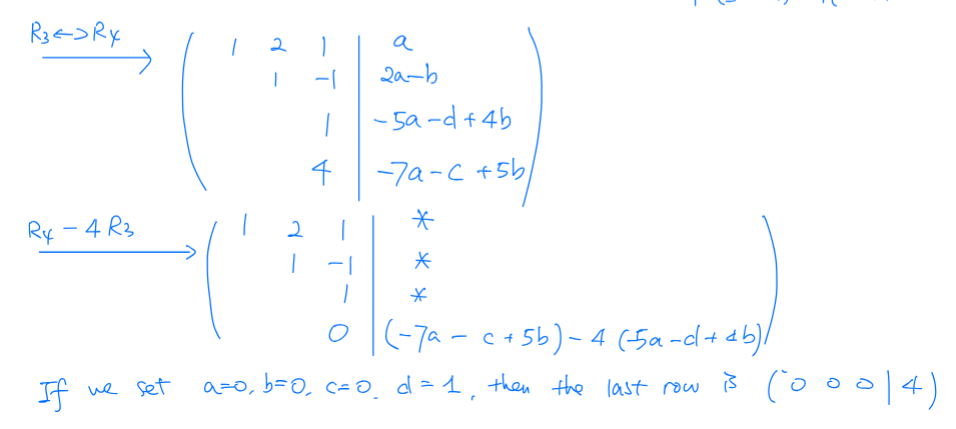 R3 <-> R4
1 2 1 | a
1 -1 | 2a-b
1 | -5a-d+4b
4 | -7a-c+5b
R4 - 4R3
1 2 1 | *
1 -1 | *
1 | *
0 | (-7a-c+5b)-4(-5a-d+4b)
If we set a=0, b=0, c=0, d=1, then the last row is (0 0 0 | 4)